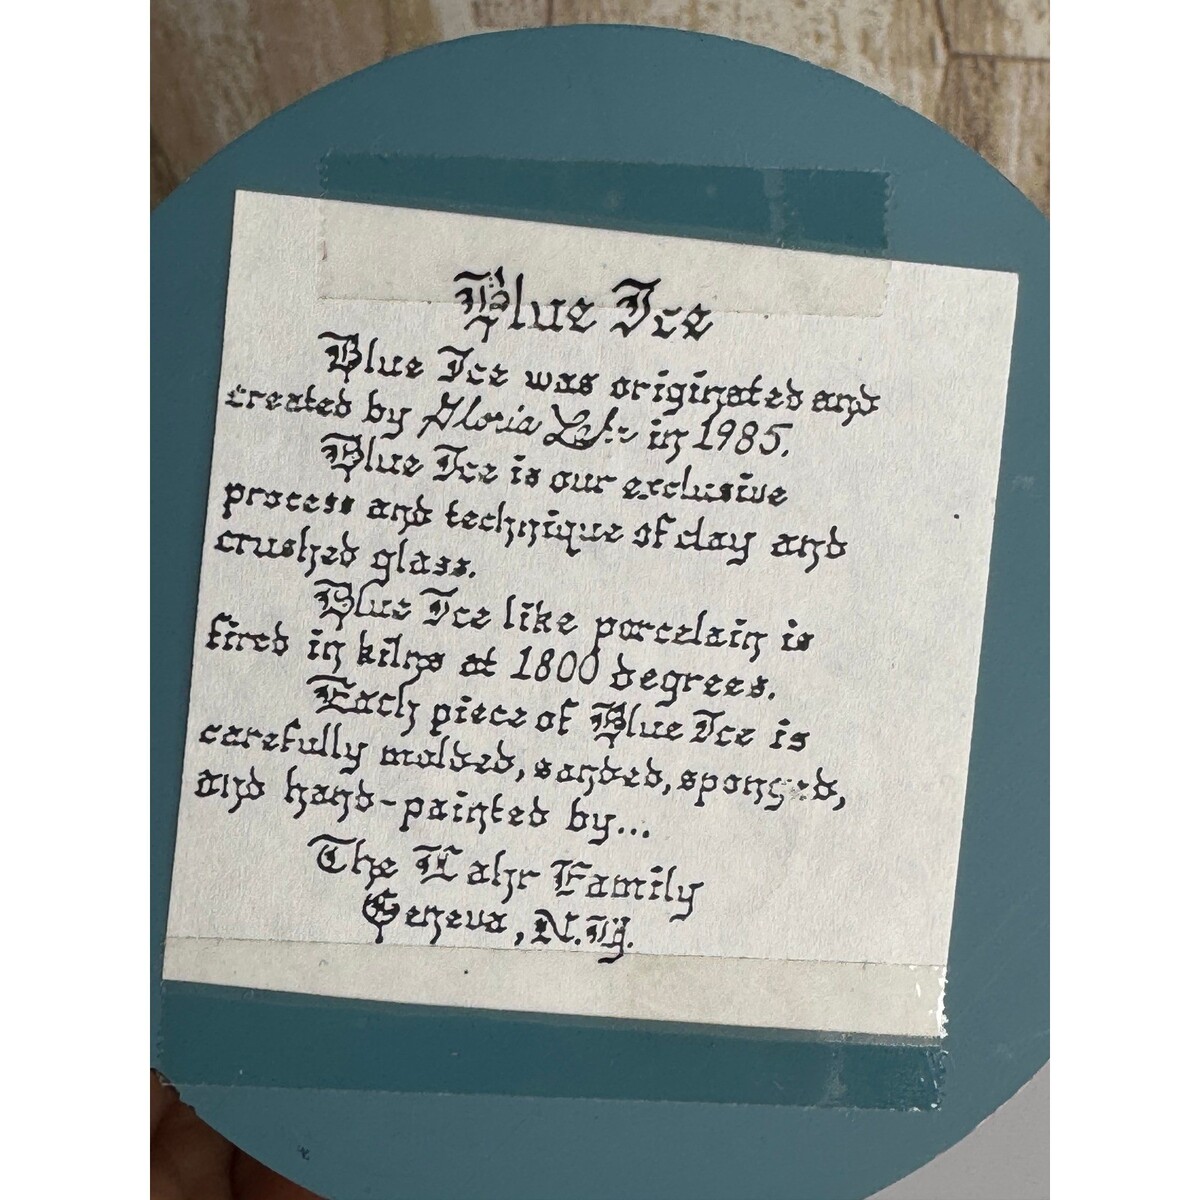 Blue Ice
Blue Ice was originated and
created by Gloria Lahr in 1985.
Blue Ice is our exclusive
process and technique of clay and
crushed glass.
Blue Ice like porcelain is
fired in kilns at 1800 degrees.
Each piece of Blue Ice is
carefully molded, sanded, sponged,
and hand-painted by...
The Lahr Family
Geneva, N.Y.